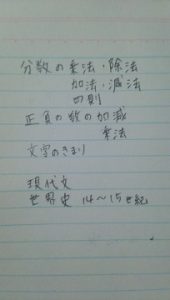 分数の乗法・除法
加法・減法
四則
正負の数の加減
乗法
文字のきまり
現代文
世界史 14〜15世紀